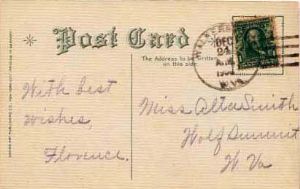 Post Card
The Address to be written
on this side.
DEC
24
W.VA.
With best
wishes,
Florence.
Miss Alta Smith
Wolf Summit
W. Va